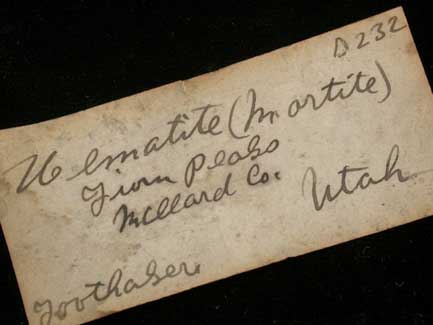 D232
Hematite (Martite)
Twin Peaks
Millard Co.
Utah
Toothaker